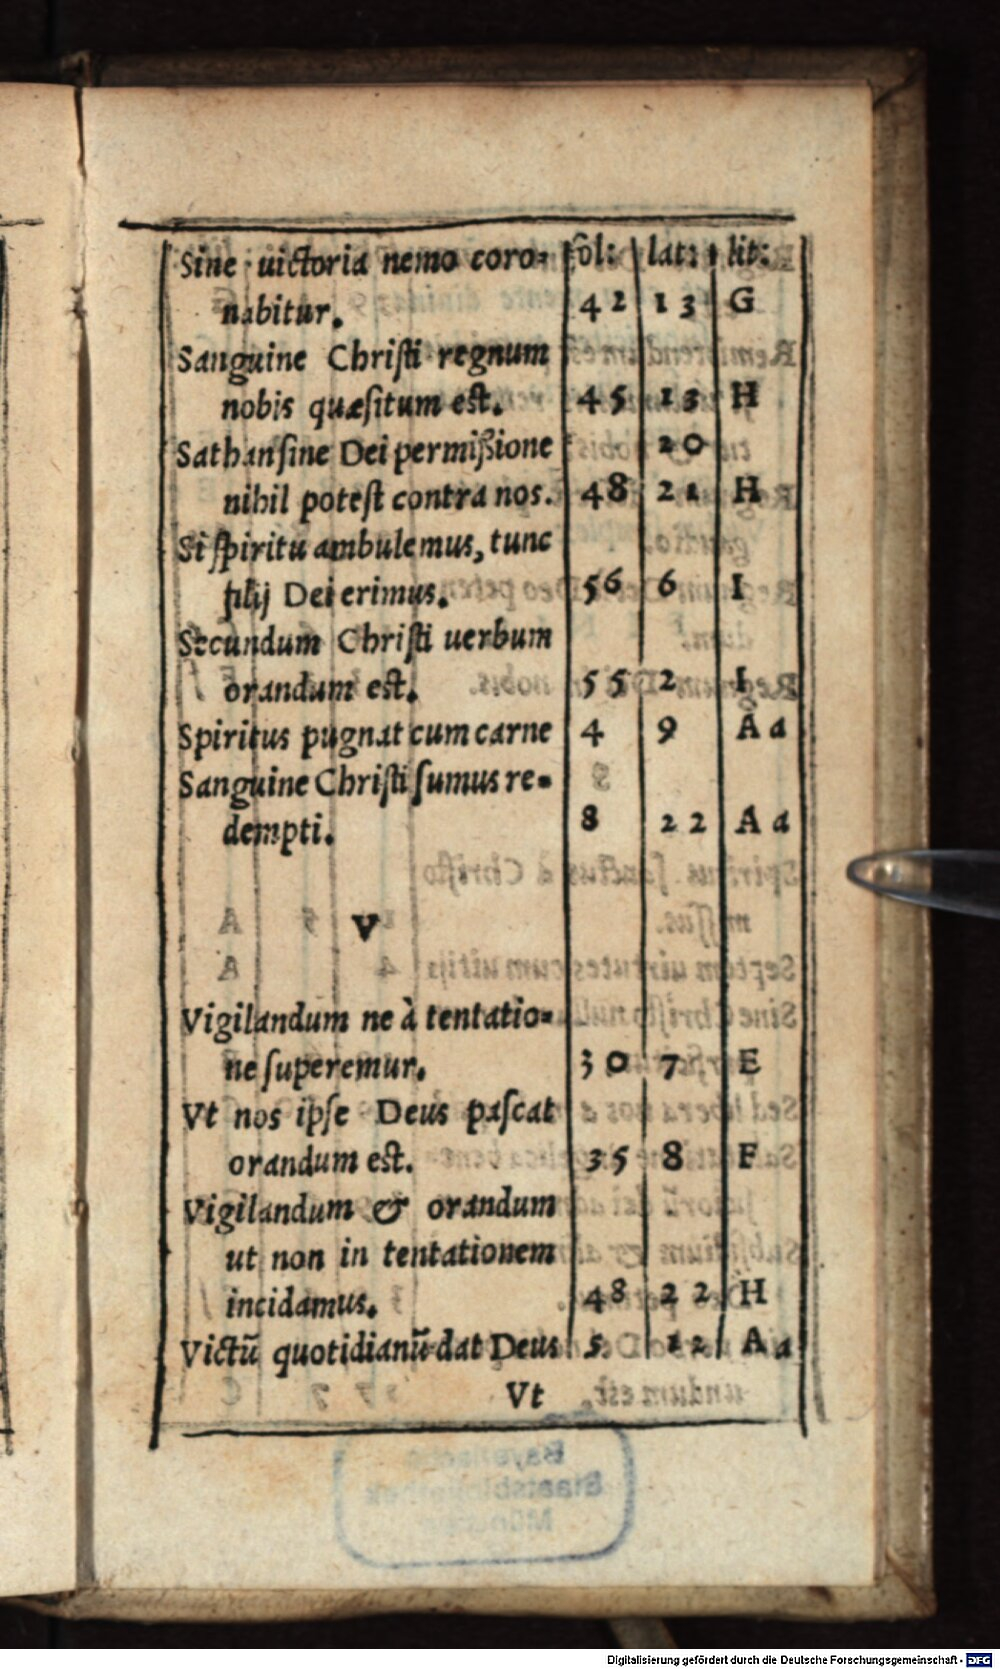 Sine uictoria nemo coro= fol: lat: lit:
nabitur. 42 13 G
Sanguine Christi regnum
nobis quæsitum est. 45 13 H
Sathan sine Dei permißione 20
nihil potest contra nos. 48 21 H
Si spiritu ambulemus, tunc
filij Dei erimus. 56 6 I
Secundum Christi uerbum
orandum est. 55 2 I
Spiritus pugnat cum carne 4 9 Aa
Sanguine Christi sumus re=
dempti. 8 22 Aa
V
Vigilandum ne à tentatio=
ne superemur. 30 7 E
Vt nos ipse Deus pascat
orandum est. 35 8 F
Vigilandum & orandum
ut non in tentationem
incidamus. 48 22 H
Victũ quotidianũ dat Deus 5 12 Aa
Vt
Bayerische
Staatsbibliothek
München
Digitalisierung gefördert durch die Deutsche Forschungsgemeinschaft - DFG